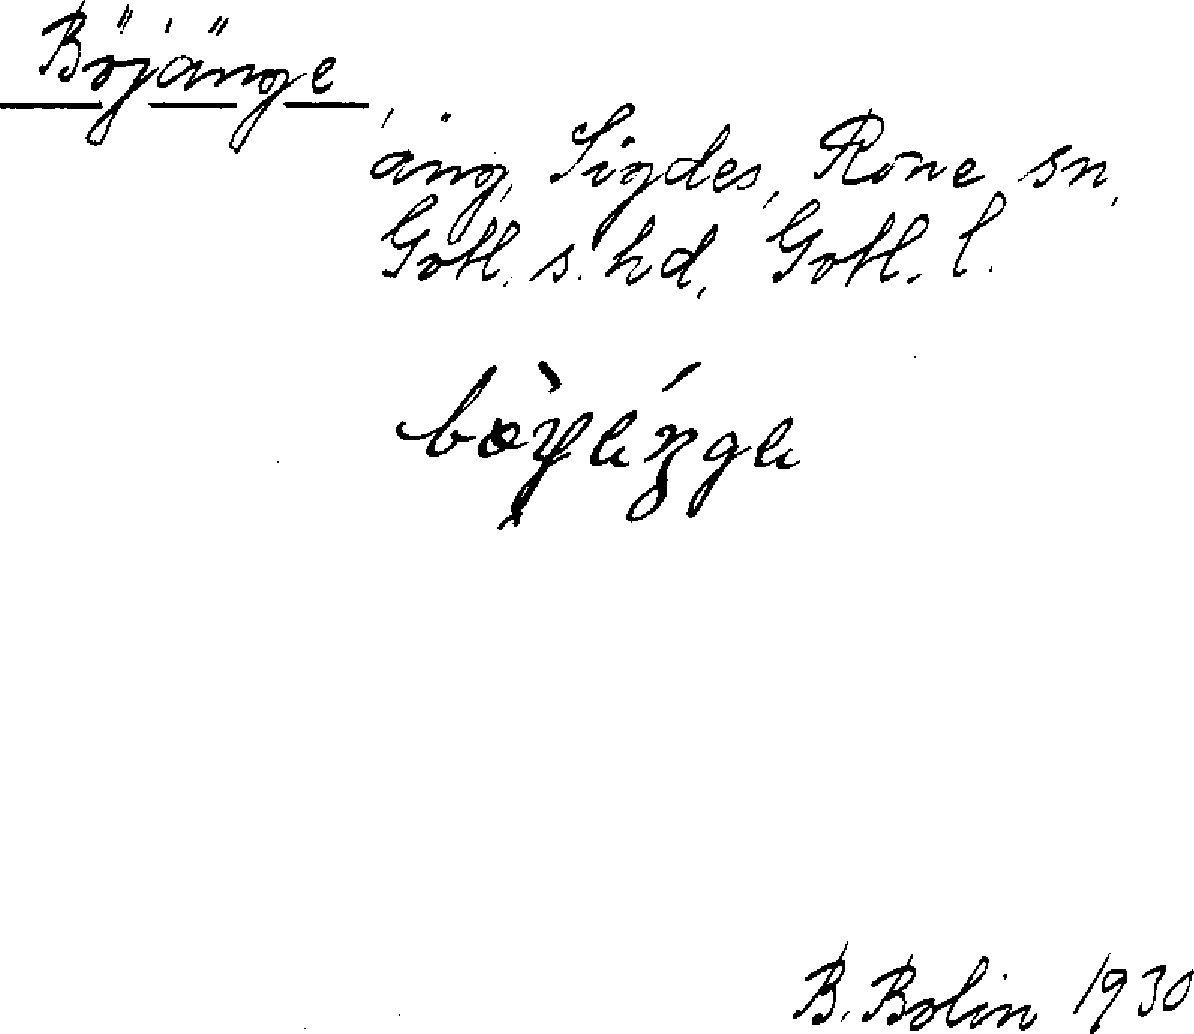 Böjänge
äng, Sigdes, Rone sn,
Gotl. s. hd, Gotl. l.
B. Bolin 1930